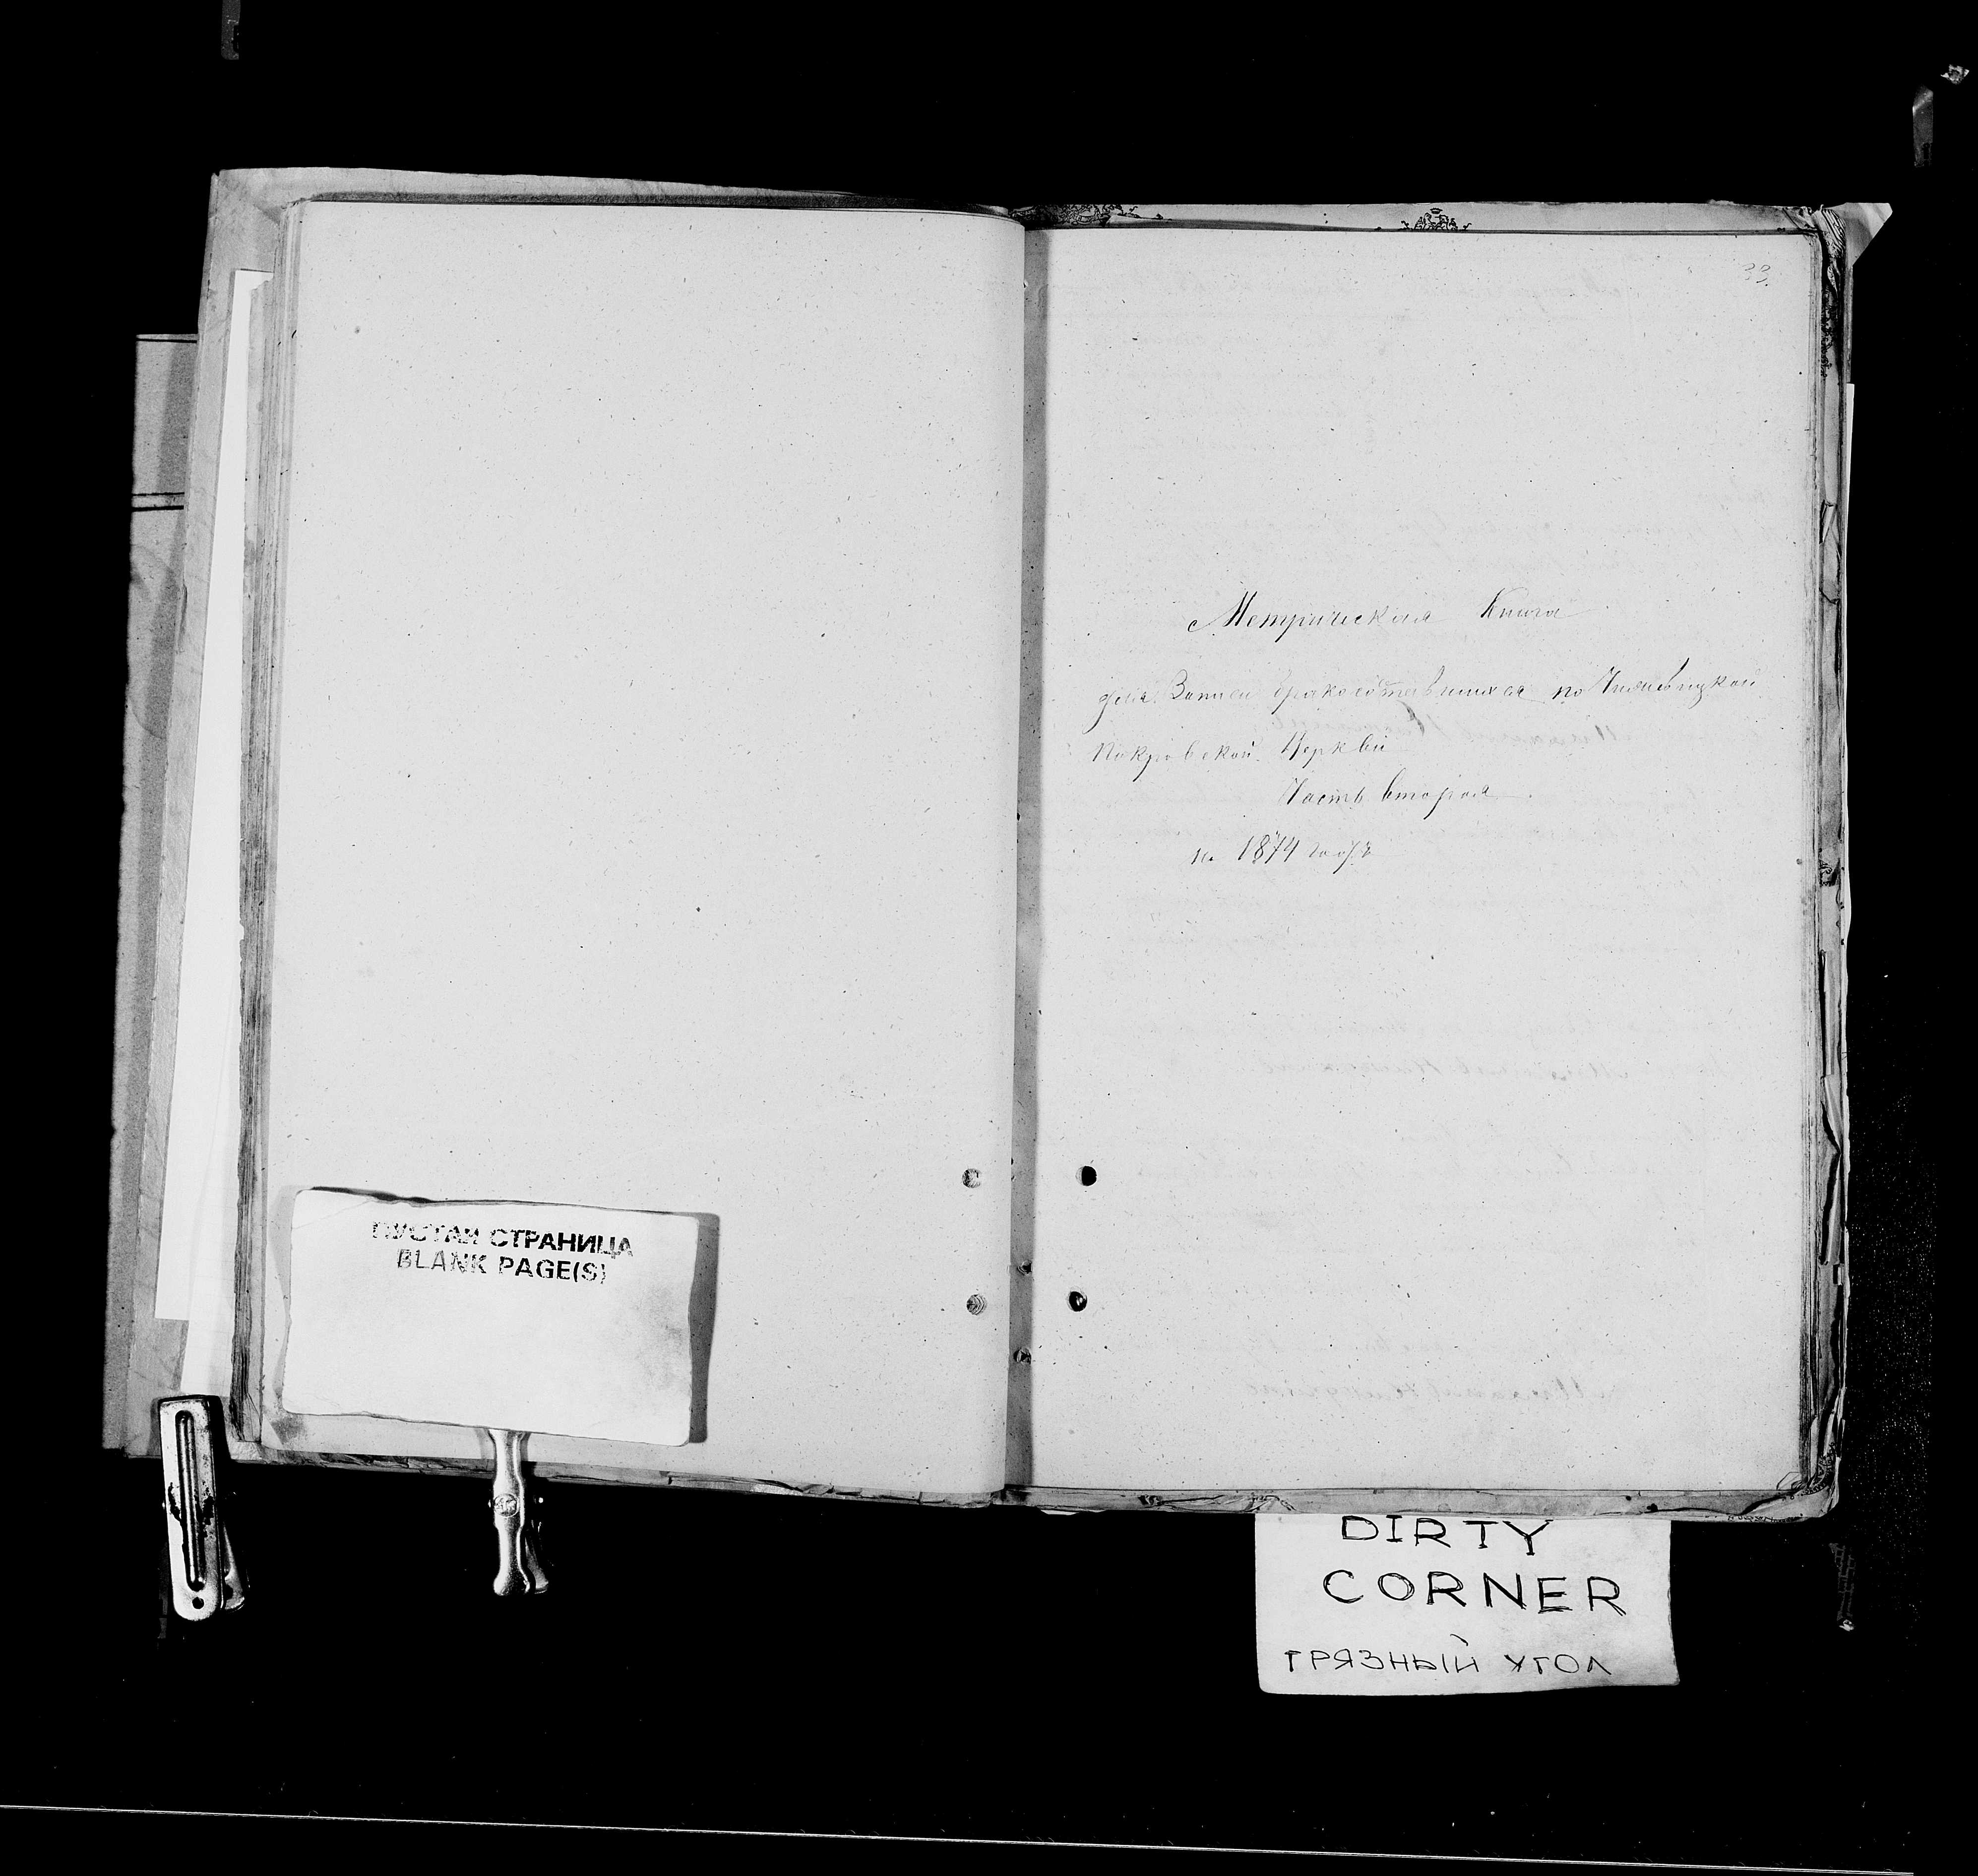 33.
Метрическая Книга
для Записи бракосочетавшихся по
Покровской Церкви
Часть вторая
на 1874 годъ
ПУСТАЯ СТРАНИЦА
BLANK PAGE(S)
DIRTY
CORNER
ГРЯЗНЫЙ УГОЛ